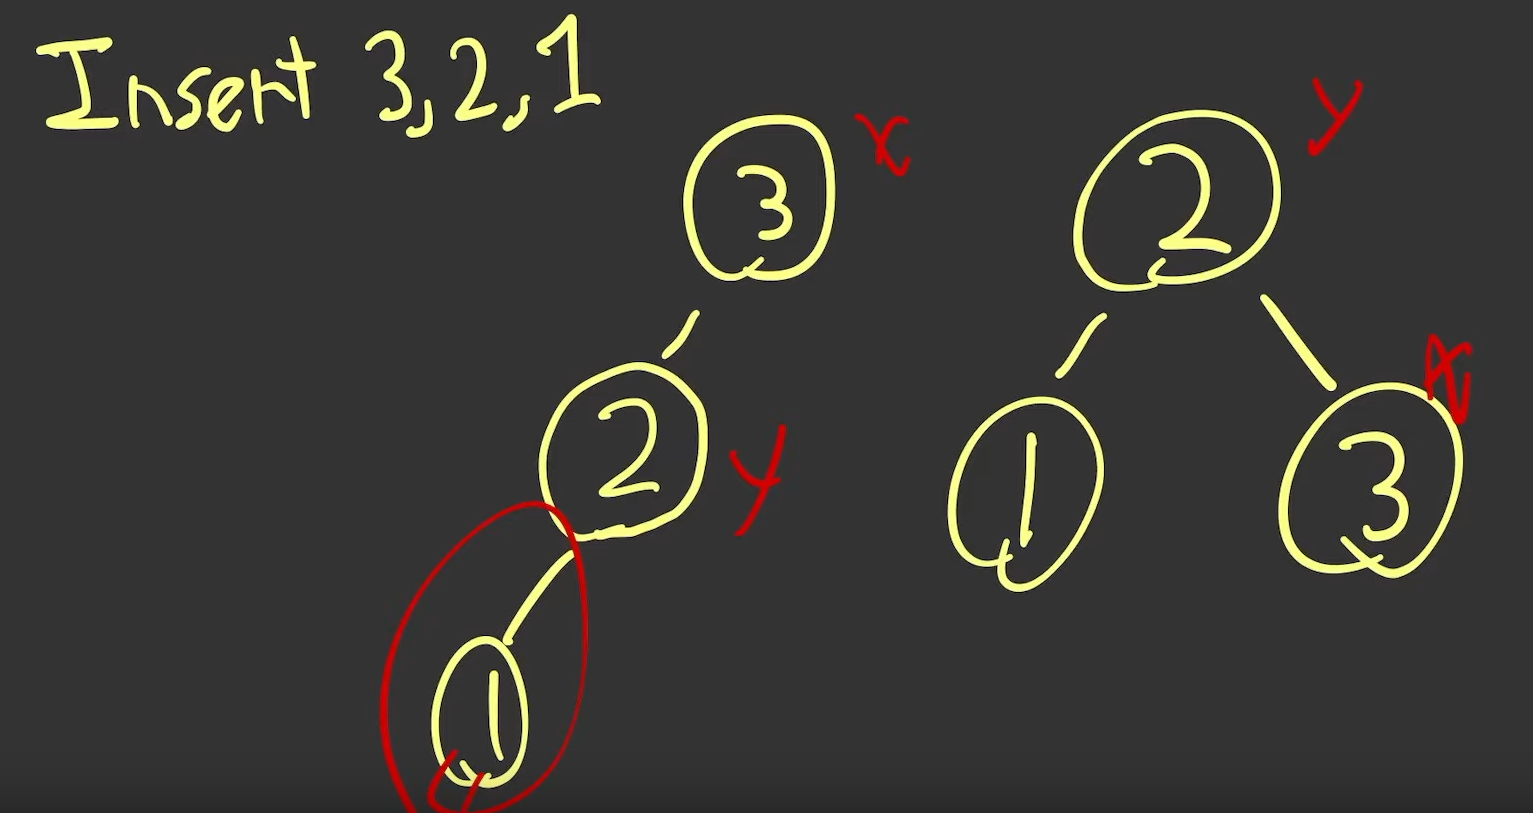 Insert 3,2,1
3 x
2 y
1
2 y
1
3 x